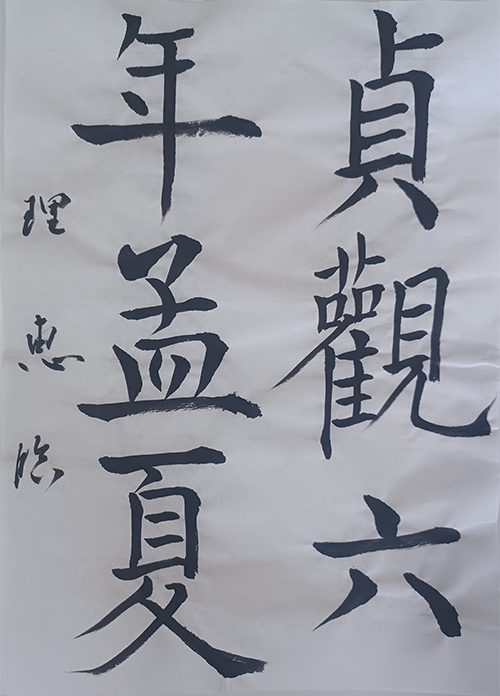 貞觀六
年孟夏
理恵臨